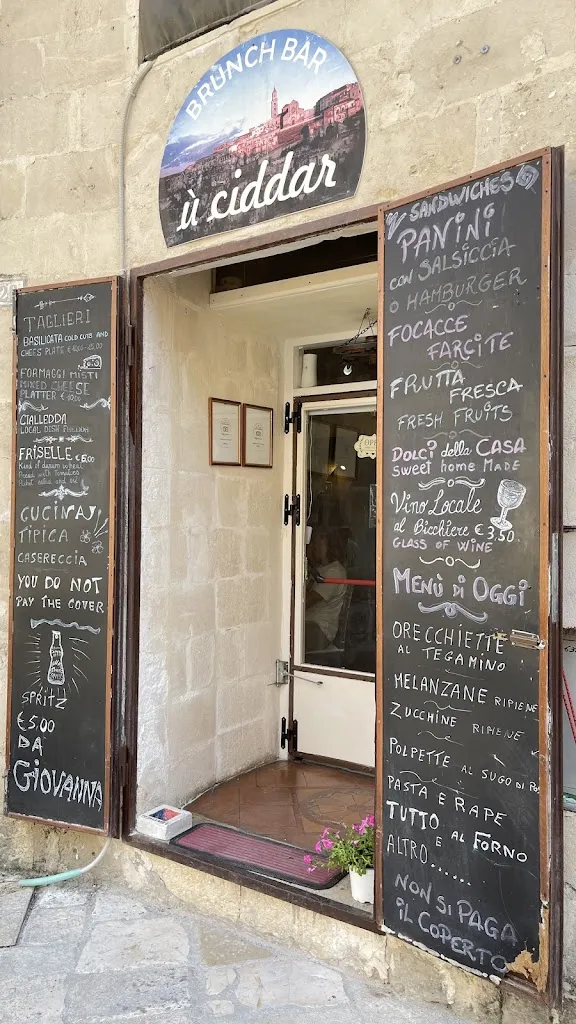 BRUNCH BAR
ù ciddar
TAGLIERI
BASILICATA COLD CUTS AND
CHEES PLATE
FORMAGGI MISTI
MIXED CHEESE
PLATTER
CIALLEDDA
LOCAL DISH
FRISELLE €5,00
Kind of durum wheat
CUCINA
TIPICA
CASERECCIA
YOU DO NOT
PAY THE COVER
SPRITZ
€5,00
DA
GIOVANNA
OPEN
SANDWICHES
PANINI
CON SALSICCIA
O HAMBURGER
FOCACCE
FARCITE
FRUTTA
FRESCA
FRESH FRUITS
DOLCI della CASA
sweet home MADE
Vino Locale
al Bicchiere €3,50
GLASS OF WINE
MENÙ Di OGGI
ORECCHIETTE
AL TEGAMINO
MELANZANE RIPIENE
ZUCCHINE RIPIENE
POLPETTE AL SUGO DI
PASTA E RAPE
TUTTO AL FORNO
E
ALTRO......
NON SI PAGA
IL COPERTO